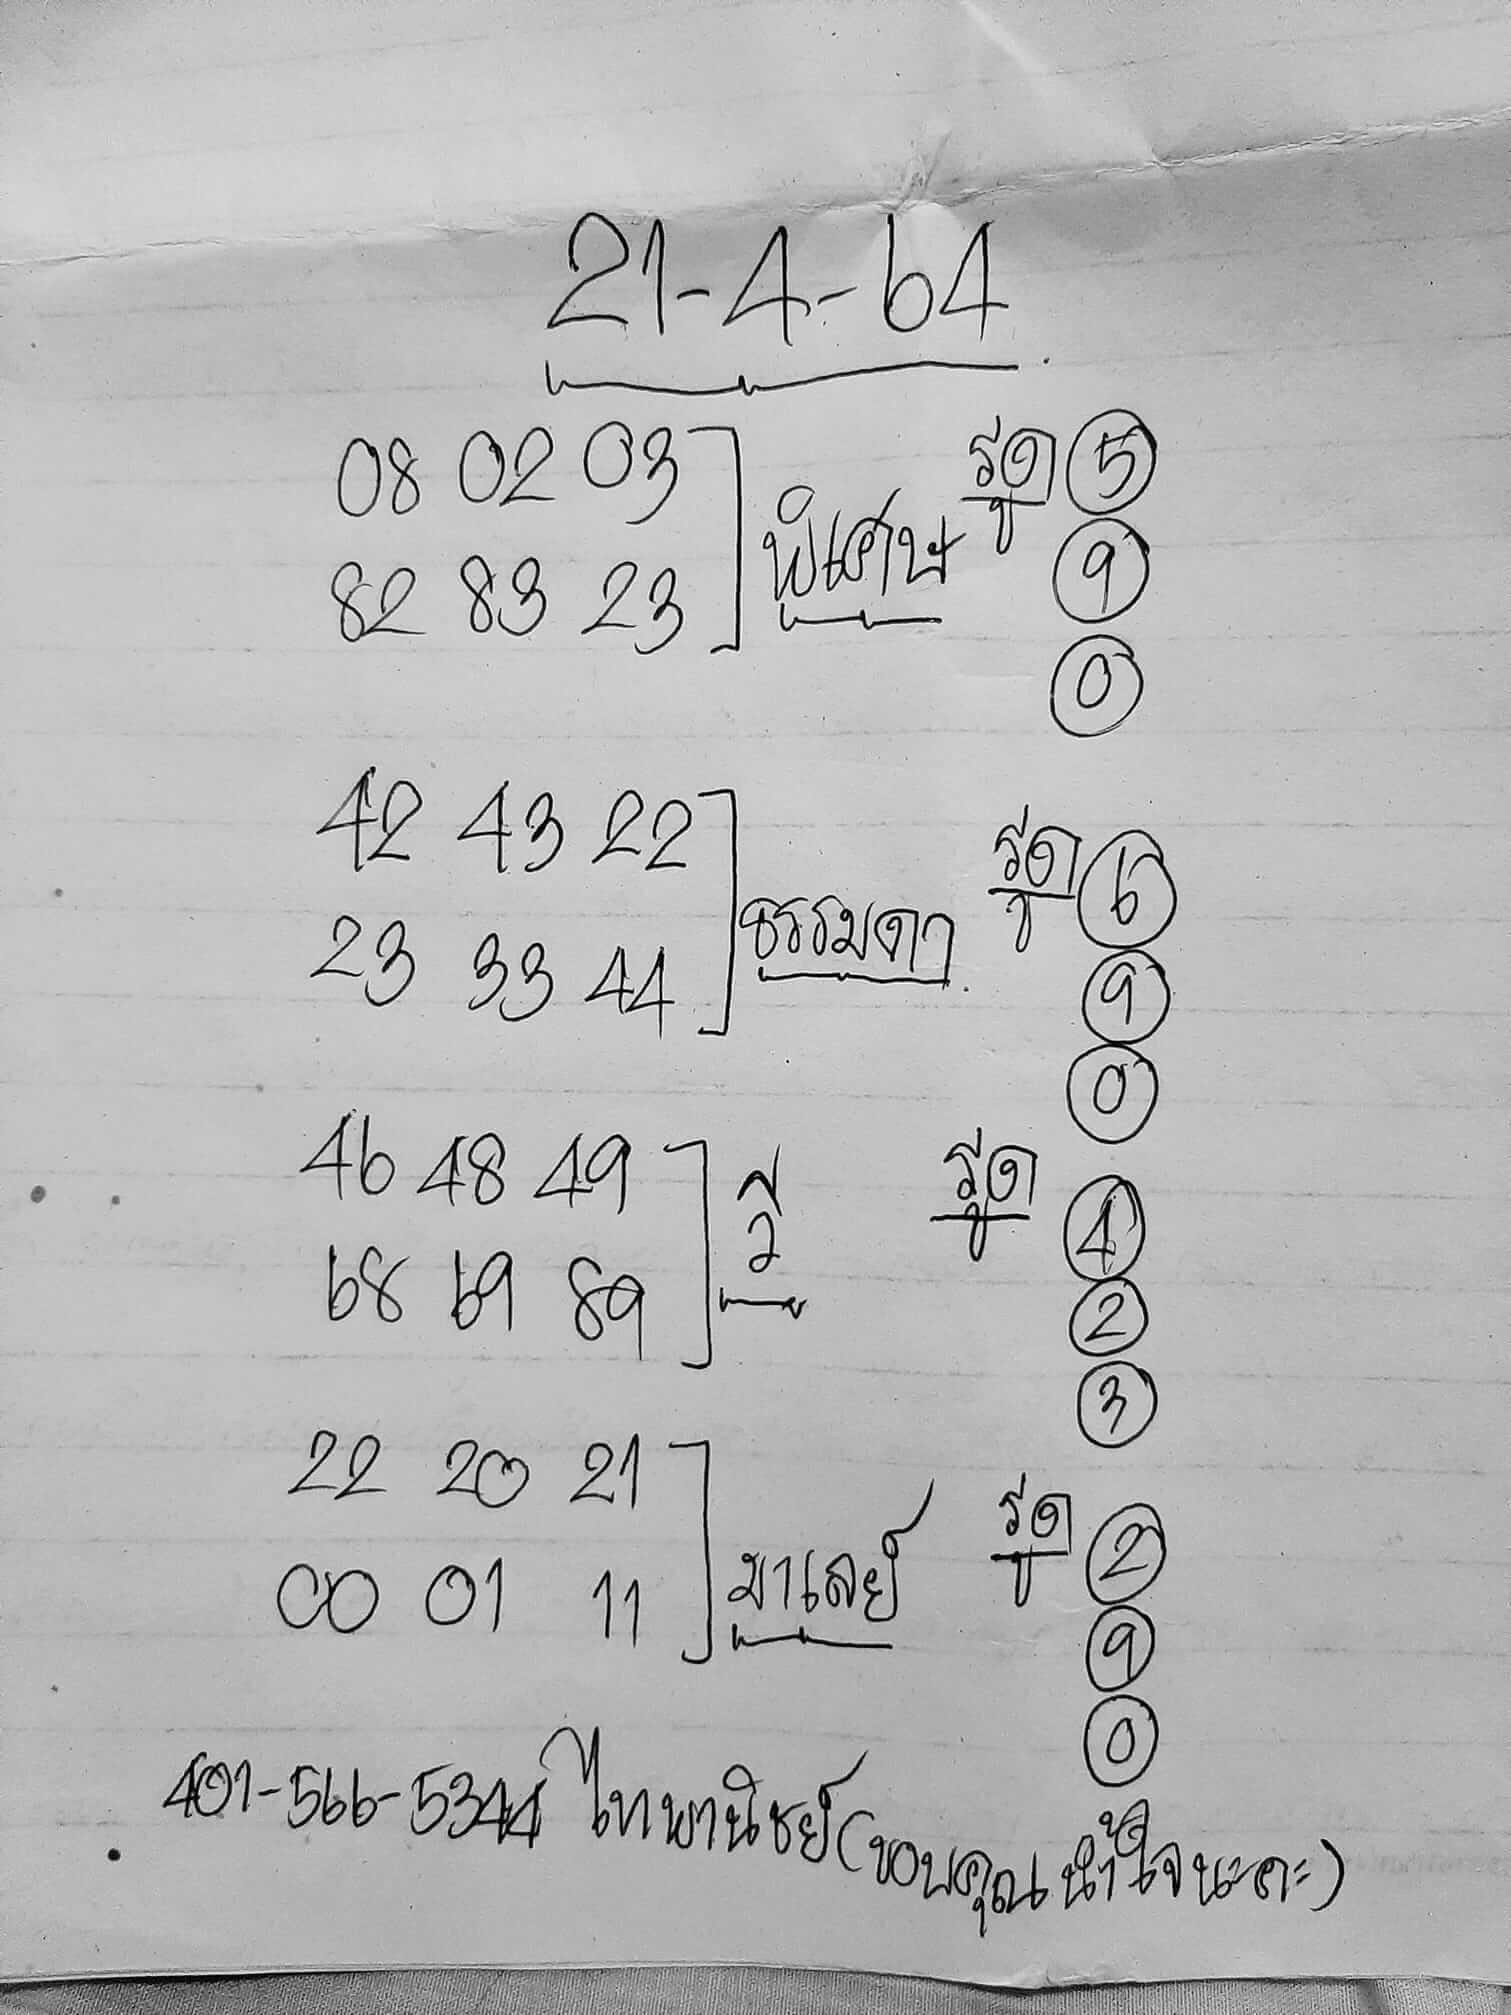 21-4-64
08 02 03
82 83 23
พิเศษ
รูด 5
9
0
42 43 22
23 33 44
ธรรมดา
รูด 6
9
0
46 48 49
68 69 89
วี
รูด 4
2
3
22 20 21
00 01 11
มาเลย์
รูด 2
9
0
401-566-5344 ไทพานิชย์ (ขอบคุณน้ำใจนะคะ)